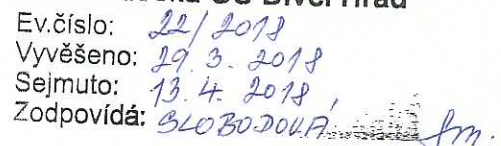 OÚ Dívčí Hrad
Ev.číslo: 22/2018
Vyvěšeno: 29. 3. 2018
Sejmuto: 13. 4. 2018
Zodpovídá: SLOBODOVÁ